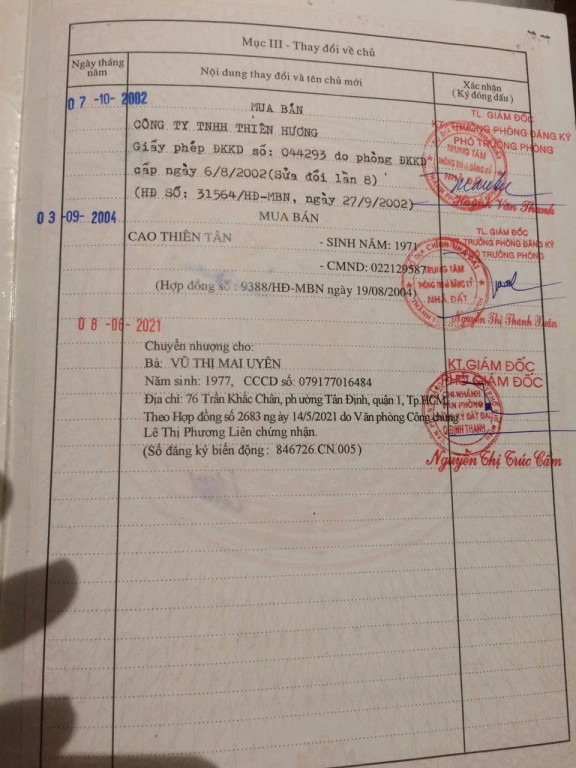 Mục III - Thay đổi về chủ
Ngày tháng năm
Nội dung thay đổi và tên chủ mới
Xác nhận
(Ký đóng dấu)
07-10-2002
MUA BÁN
CÔNG TY TNHH THIÊN HƯƠNG
Giấy phép ĐKKD số: 044293 do phòng ĐKKD
cấp ngày 6/8/2002(Sửa đổi lần 8)
(HĐ SỐ: 31564/HĐ-MBN, ngày 27/9/2002)
TL. GIÁM ĐỐC
KT. TRƯỞNG PHÒNG ĐĂNG KÝ
PHÓ TRƯỞNG PHÒNG
TRUNG TÂM
THÔNG TIN VÀ ĐĂNG KÝ
NHÀ ĐẤT
Huỳnh Văn Thanh
03-09-2004
MUA BÁN
CAO THIÊN TÂN
- SINH NĂM: 1971
- CMND: 022129587
(Hợp đồng số : 9388/HĐ-MBN ngày 19/08/2004)
TL. GIÁM ĐỐC
TRƯỞNG PHÒNG ĐĂNG KÝ
TRƯỞNG PHÒNG
TRUNG TÂM
THÔNG TIN VÀ ĐĂNG KÝ
NHÀ ĐẤT
Nguyễn Thị Thanh Xuân
08-06-2021
Chuyển nhượng cho:
Bà: VŨ THỊ MAI UYÊN
Năm sinh: 1977, CCCD số: 079177016484
Địa chỉ: 76 Trần Khắc Chân, phường Tân Định, quận 1, Tp.HCM
Theo Hợp đồng số 2683 ngày 14/5/2021 do Văn phòng Công chứng
Lê Thị Phương Liên chứng nhận.
(Số đăng ký biến động: 846726.CN.005)
KT.GIÁM ĐỐC
GIÁM ĐỐC
CHI NHÁNH
VĂN PHÒNG
ĐĂNG KÝ ĐẤT ĐAI
Nguyễn Thị Trúc Cầm